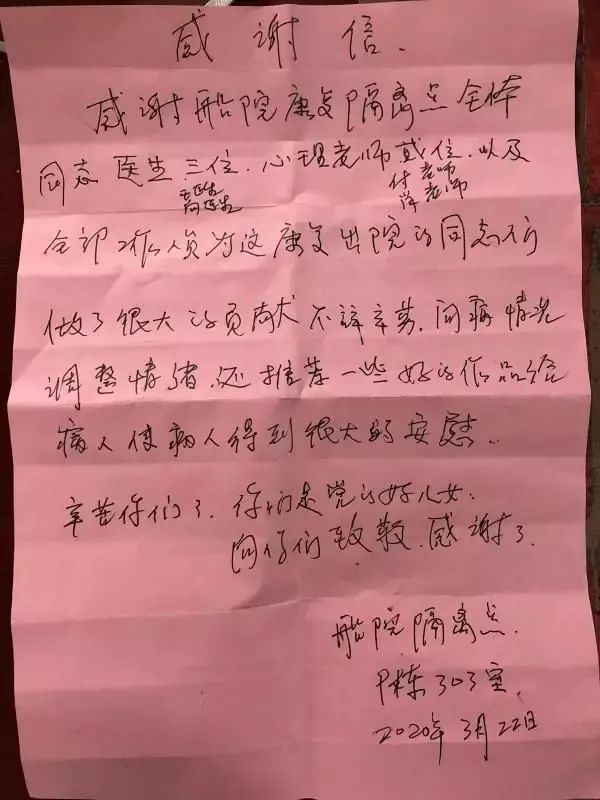 感谢信.
感谢船院康复隔离点全体
同志 医生三位.心理老师贰位.以及
医生 付老师
周医生 老师
全部工作人员为这康复出院的同志们
做了很大的贡献 不辞辛劳.问病情况
调整情绪.还推荐一些好的作品给
病人使病人得到很大的安慰..
辛苦你们了.你们是党的好儿女.
向你们致敬.感谢了.
船院隔离点.
P栋303室
2020年3月22日